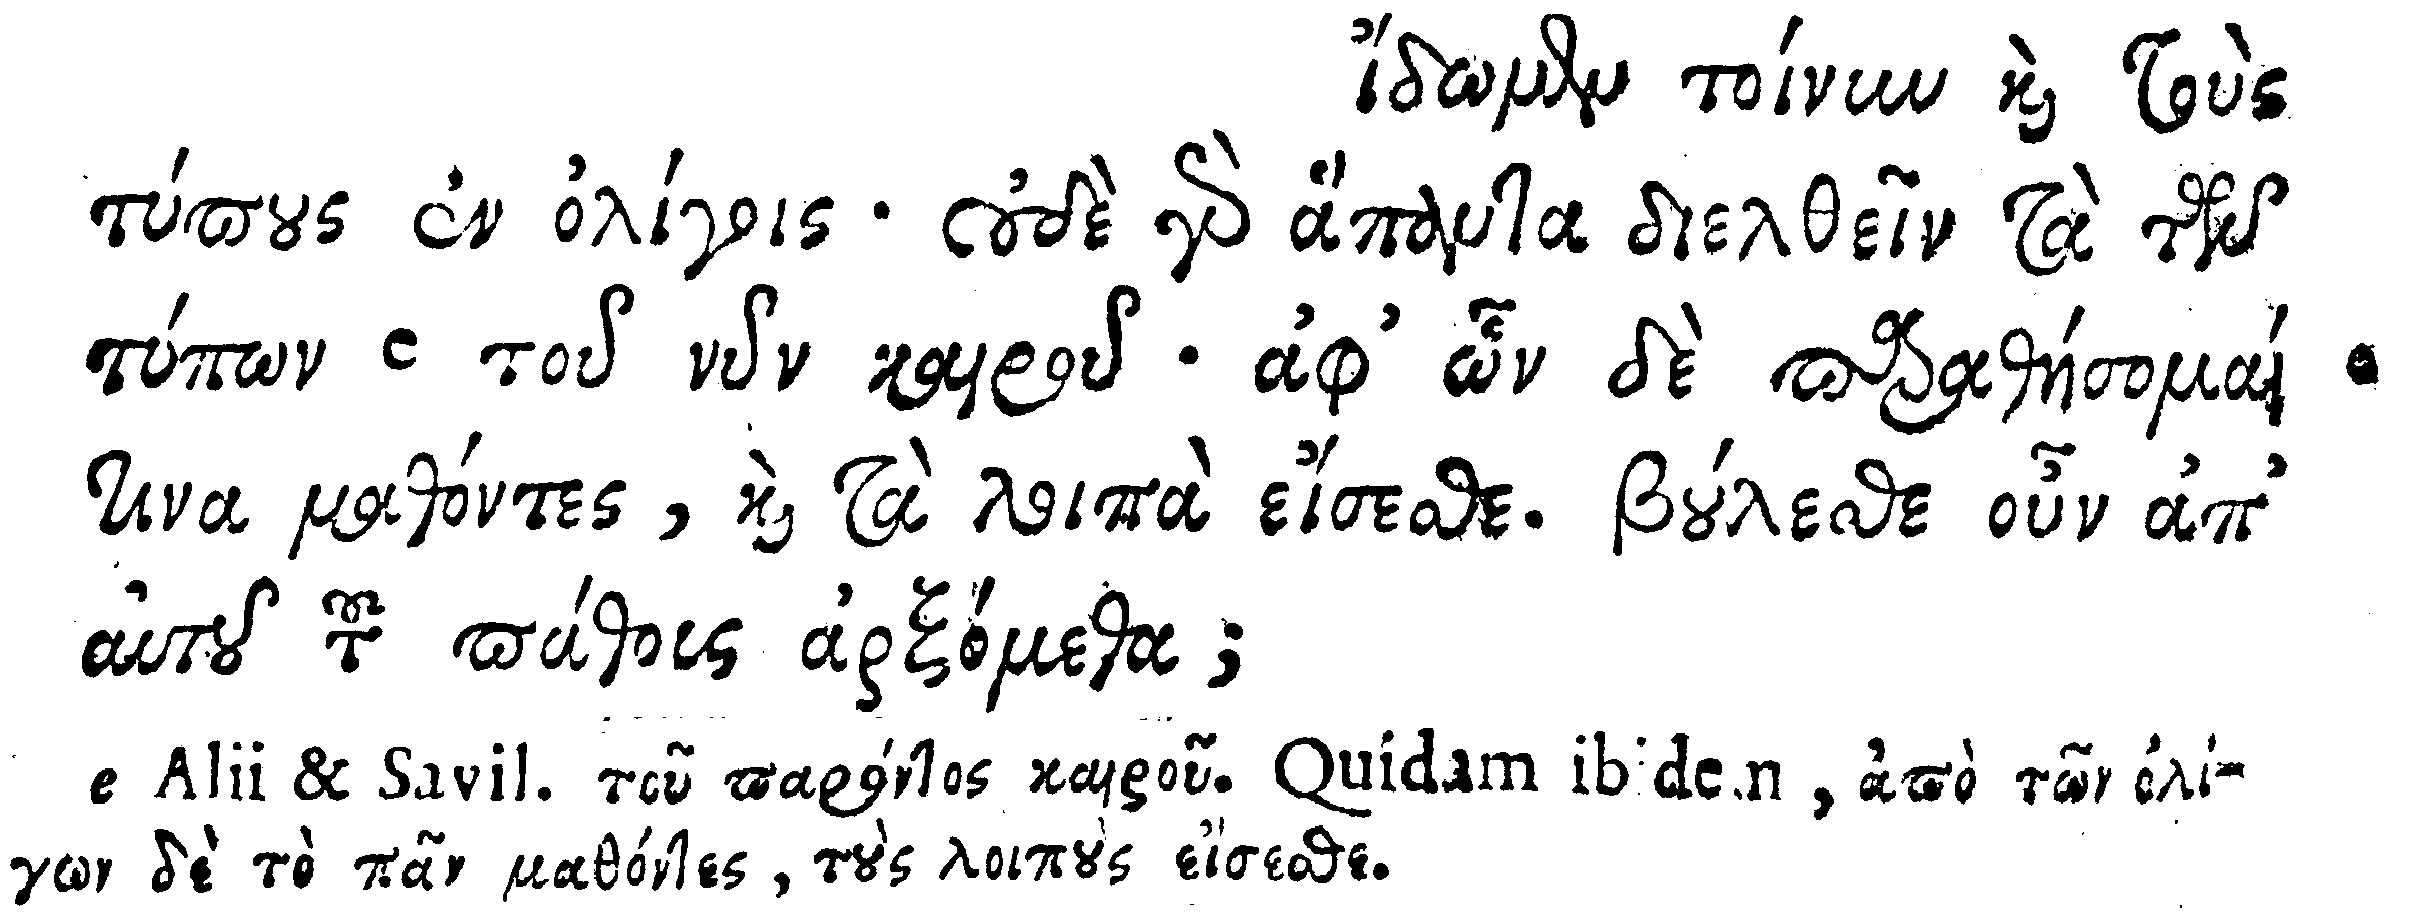 ἴδωμεν τοίνυν καὶ τοὺς
τύπους ἐν ὀλίγοις · οὐδὲ γὰρ ἅπαντα διελθεῖν τὰ τῶν
τύπων e τοῦ νῦν καιροῦ · ἀφ’ ὧν δὲ παραθήσομαι ·
τινα μαθόντες, καὶ τὰ λοιπὰ εἴσεσθε. βούλεσθε οὖν ἀπ’
αὐτοῦ τοῦ πάθους ἀρξόμεθα;
e Alii & Savil. τοῦ παρόντος καιροῦ. Quidam ibidem, ἀπὸ τῶν ὀλί-
γων δὲ τὸ πᾶν μαθόντες, τοὺς λοιποὺς εἴσεσθε.